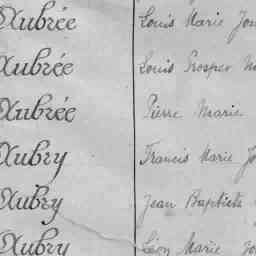 Aubrée Louis Marie
Aubrée Louis Prosper
Aubrée Pierre Marie
Aubry Francis Marie
Aubry Jean Baptiste
Aubry Léon Marie